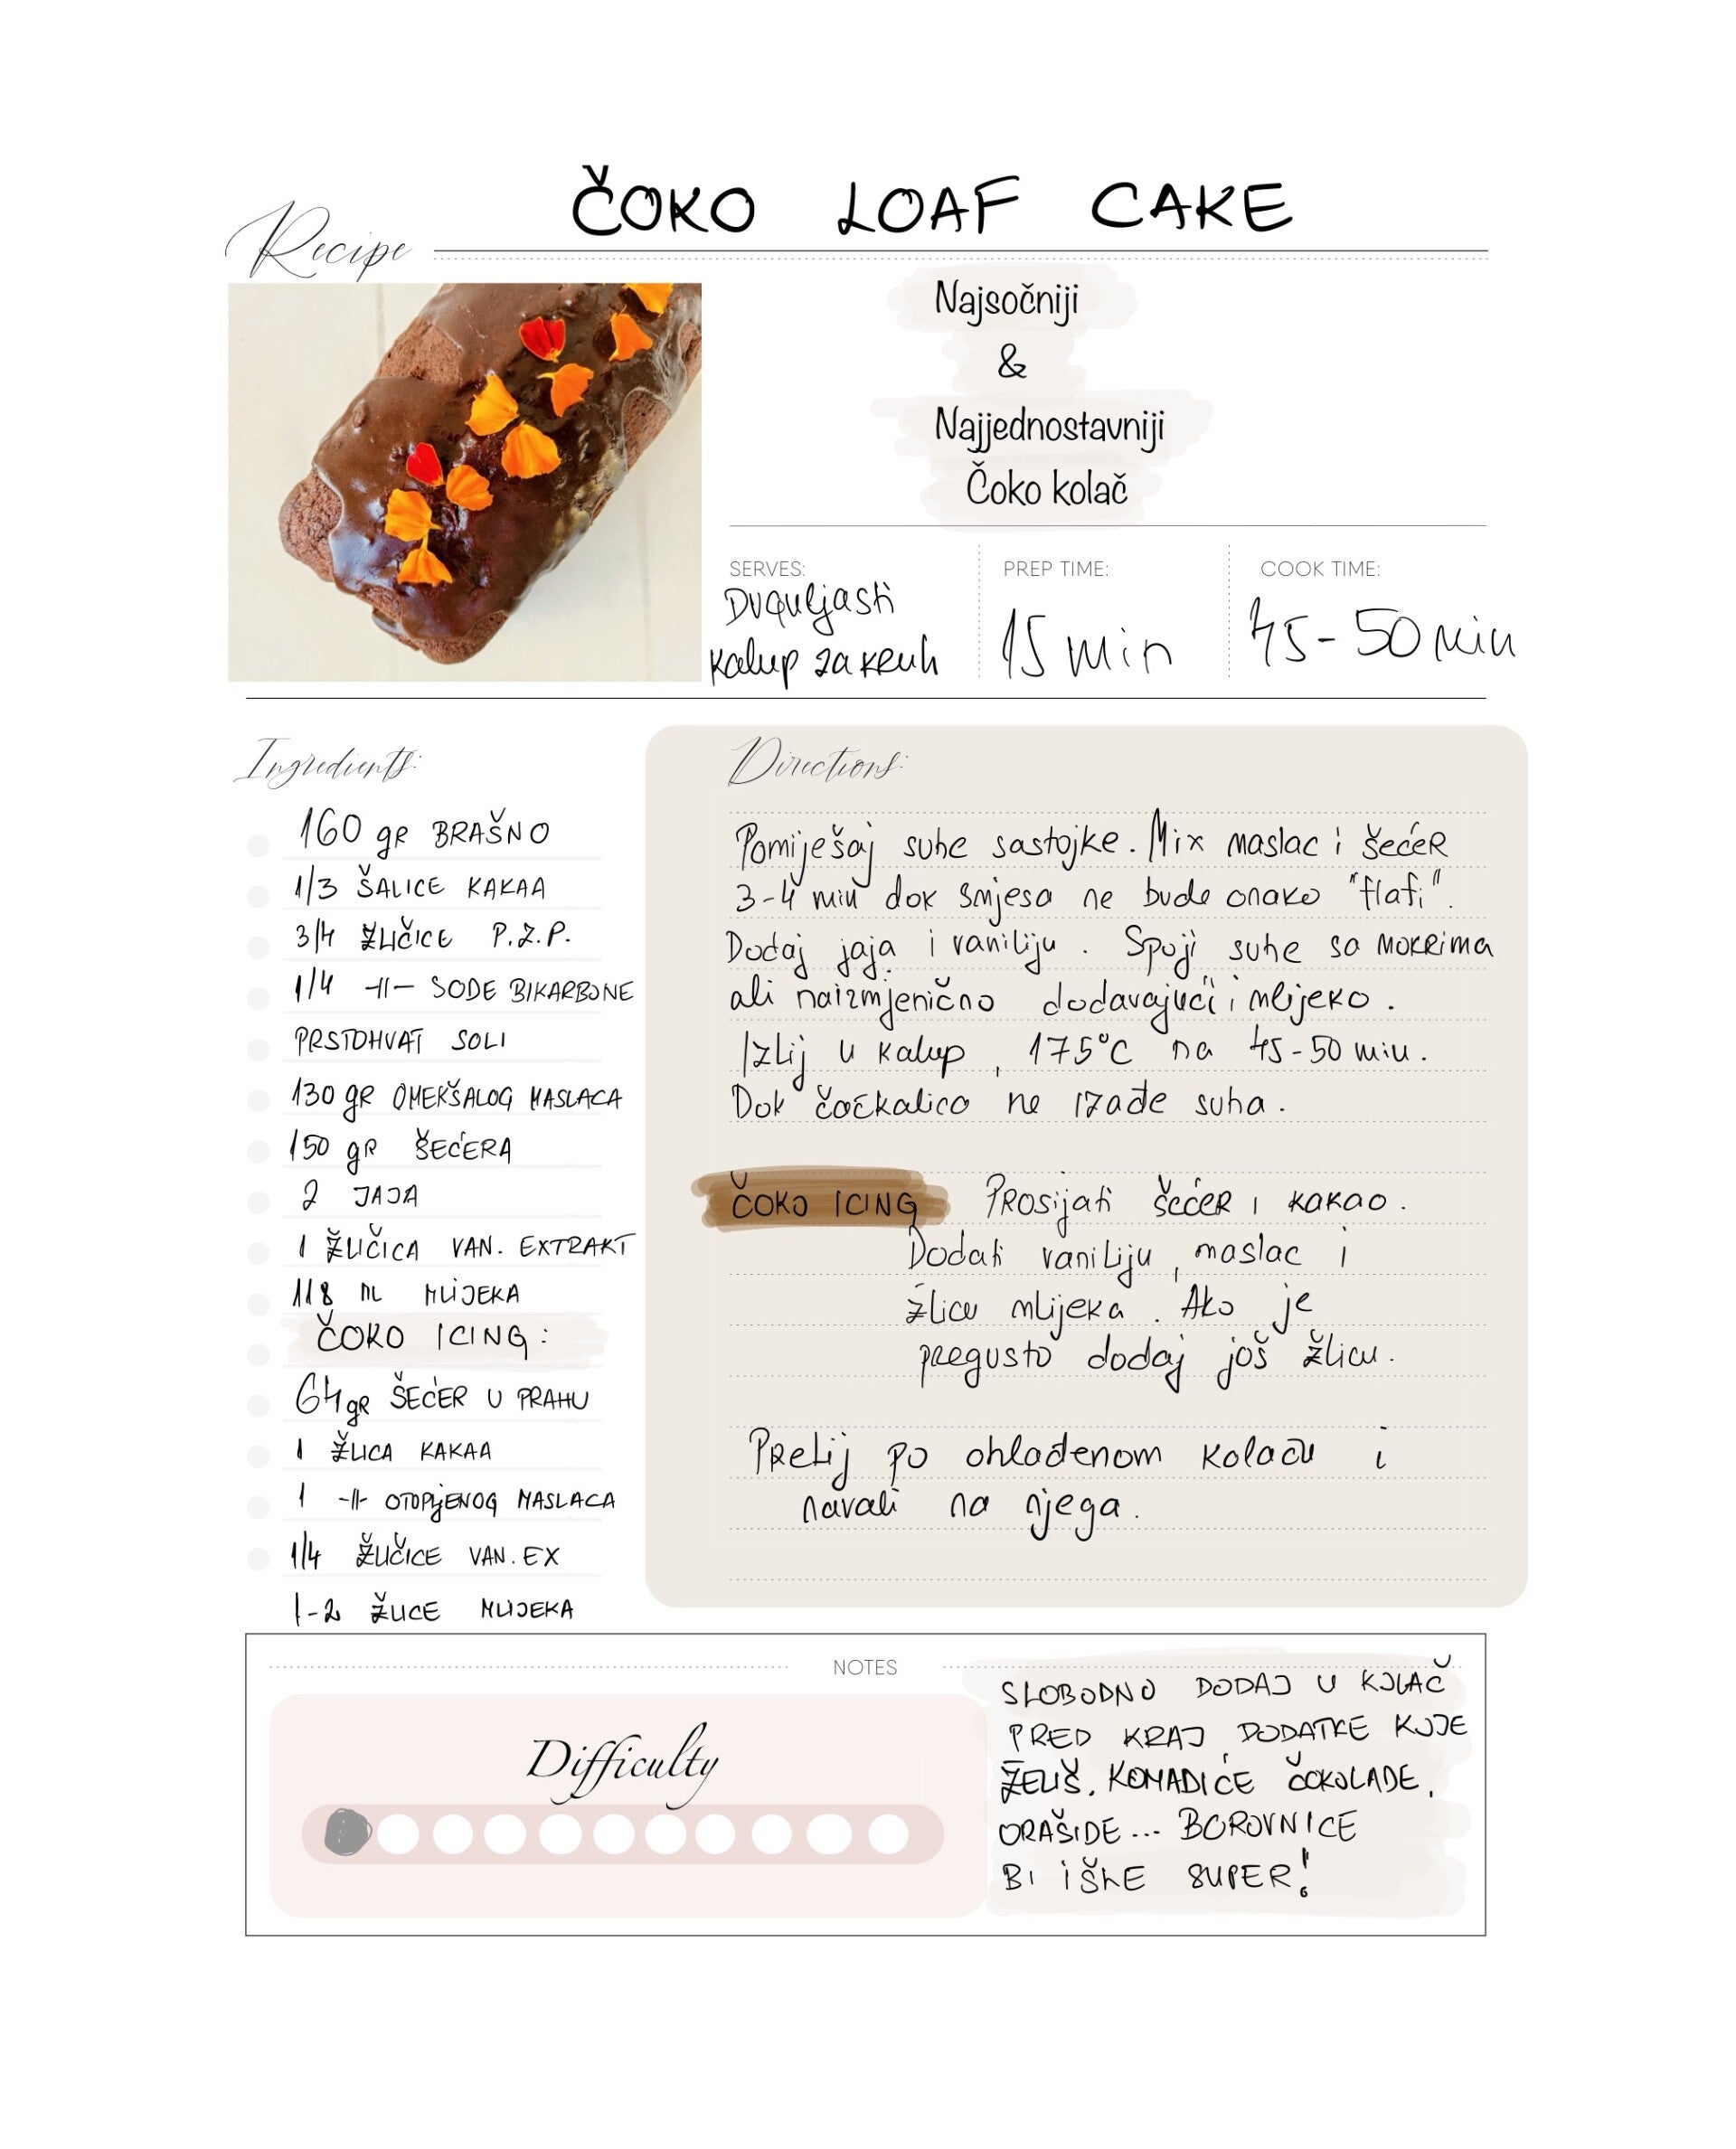 ČOKO LOAF CAKE
Recipe
Najsočniji
&
Najjednostavniji
Čoko kolač
SERVES:
Duguljasti
kalup za kruh
PREP TIME:
15 min
COOK TIME:
45-50 min
Ingredients:
160 gr BRAŠNO
1/3 ŠALICE KAKAA
3/4 ŽLIČICE P.Z.P.
1/4 -||- SODE BIKARBONE
PRSTOHVAT SOLI
130 gr OMEKŠALOG MASLACA
150 gr ŠEĆERA
2 JAJA
1 ŽLIČICA VAN. EXTRAKT
118 ml MLIJEKA
ČOKO ICING:
64 gr ŠEĆER U PRAHU
1 ŽLICA KAKAA
1 -||- OTOPLJENOG MASLACA
1/4 ŽLIČICE VAN. EX
1-2 ŽLICE MLIJEKA
Directions:
Pomiješaj suhe sastojke. Mix maslac i šećer
3-4 min dok smjesa ne bude onako "flafi".
Dodaj jaja i vaniliju. Spoji suhe sa mokrima
ali naizmjenično dodavajući i mlijeko.
Izlij u kalup, 175°C na 45-50 min.
Dok čačkalica ne izađe suha.
ČOKO ICING Prosijati šećer i kakao.
Dodati vaniliju, maslac i
žlicu mlijeka. Ako je
pregusto dodaj još žlicu.
Prelij po ohlađenom kolaču i
navali na njega.
NOTES
Difficulty
SLOBODNO DODAJ U KOLAČ
PRED KRAJ DODATKE KOJE
ŽELIŠ, KOMADIĆE ČOKOLADE,
ORAŠIDE... BOROVNICE
BI IŠLE SUPER!